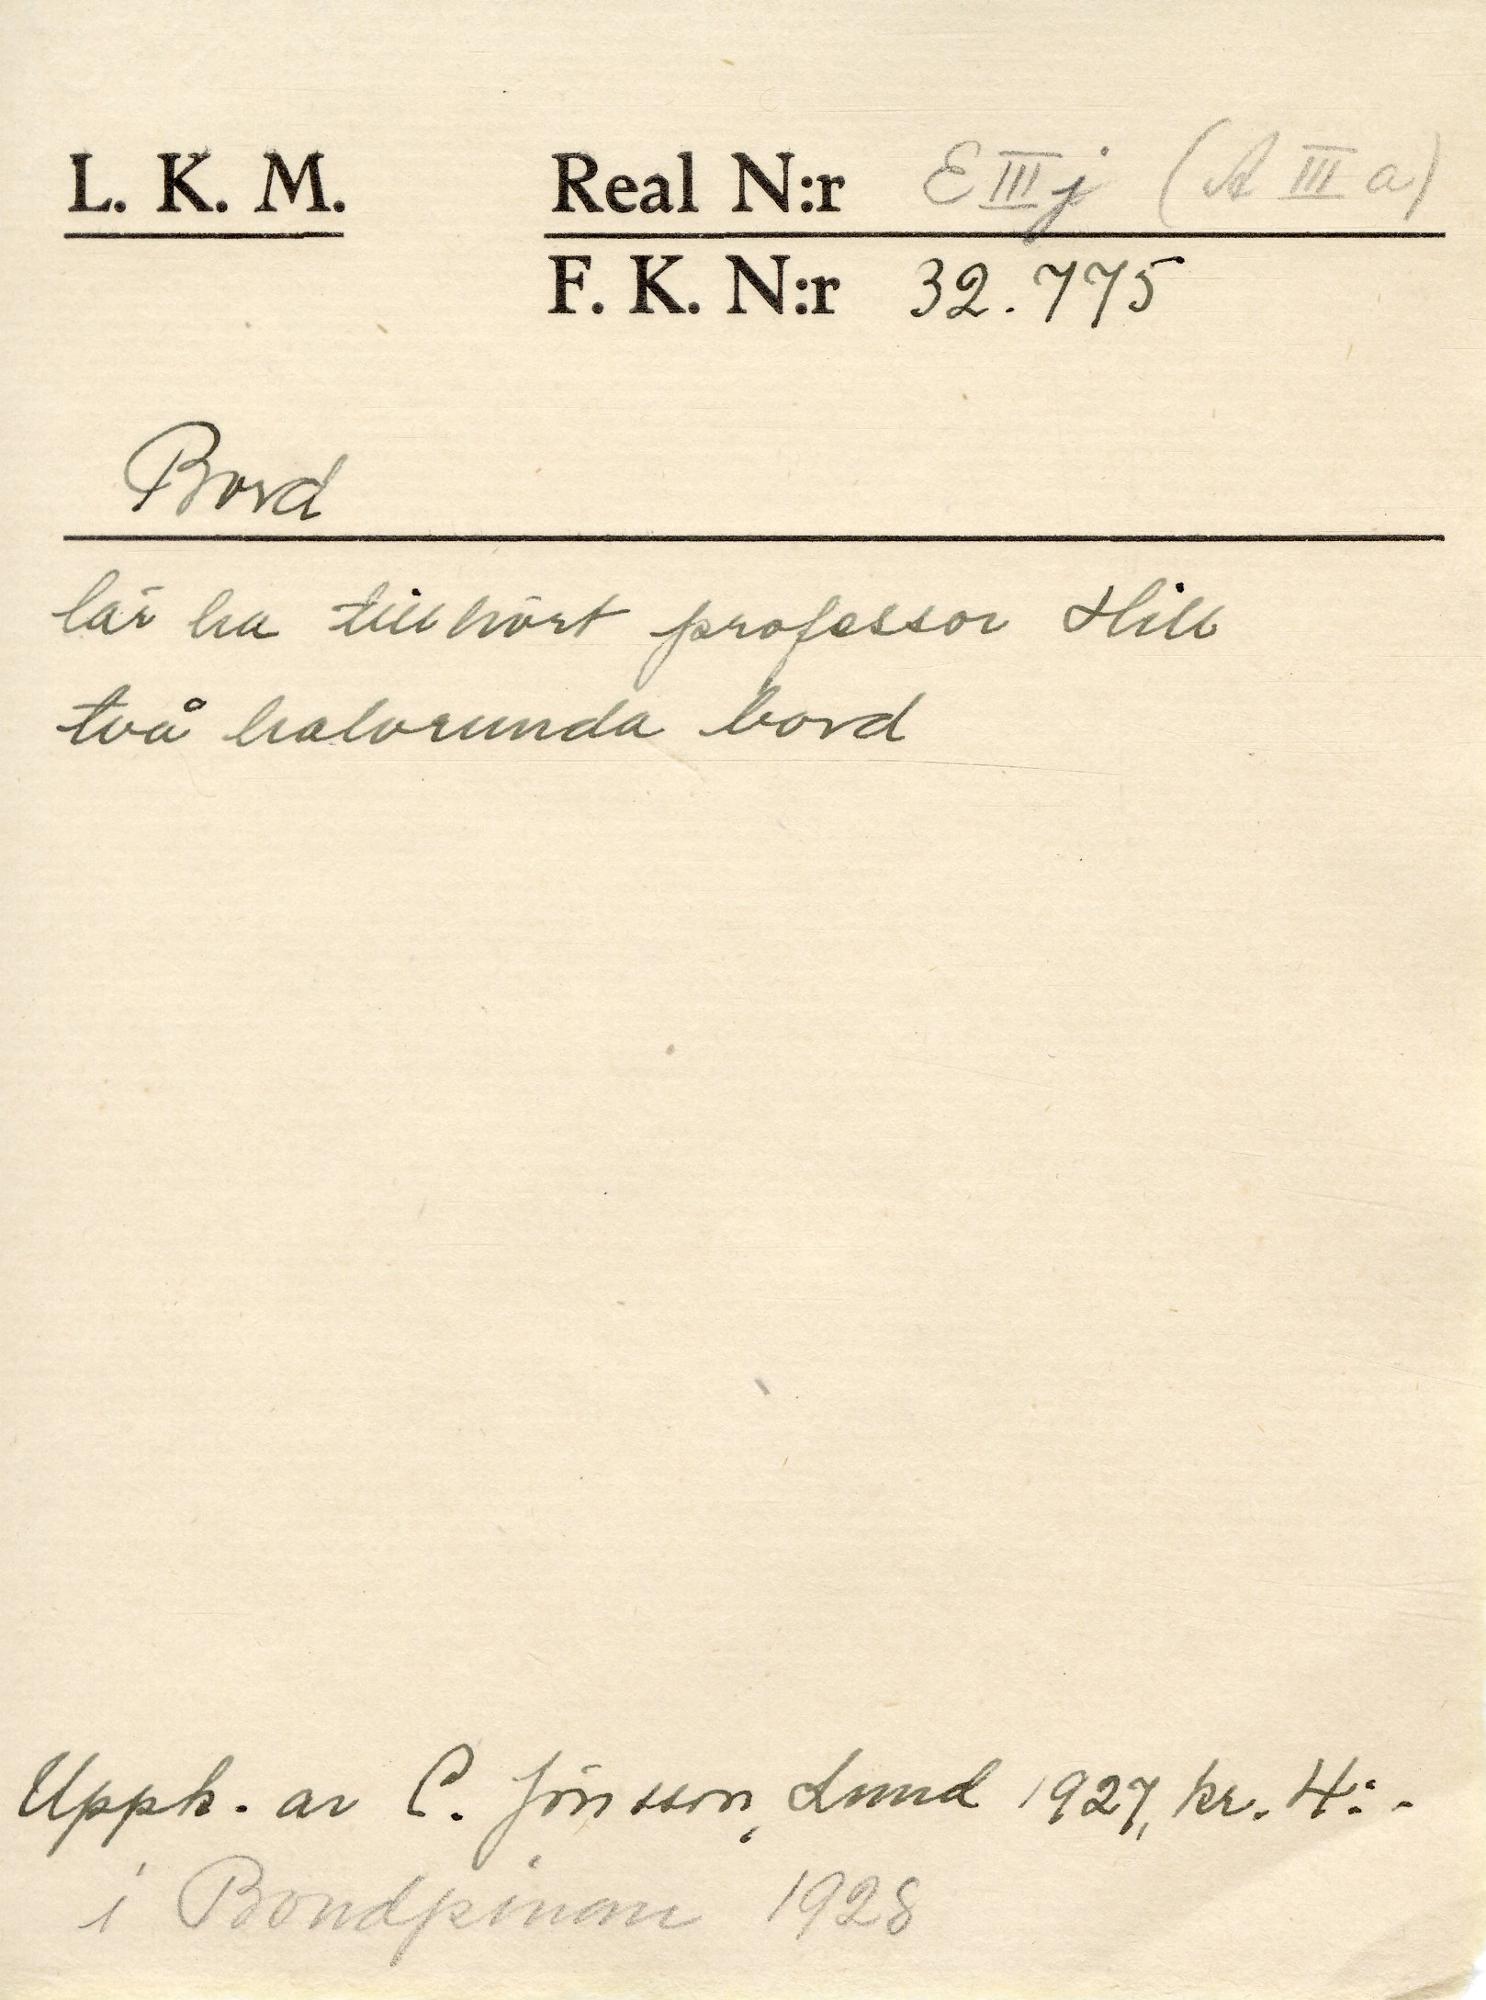 L. K. M.
Real N:r E III j (A III a)
F. K. N:r 32.775
Bord
lär ha tillhört professor Hill
två halvrunda bord
Uppk. av C. Jönsson, Lund 1927, kr. 4:-
i 1928